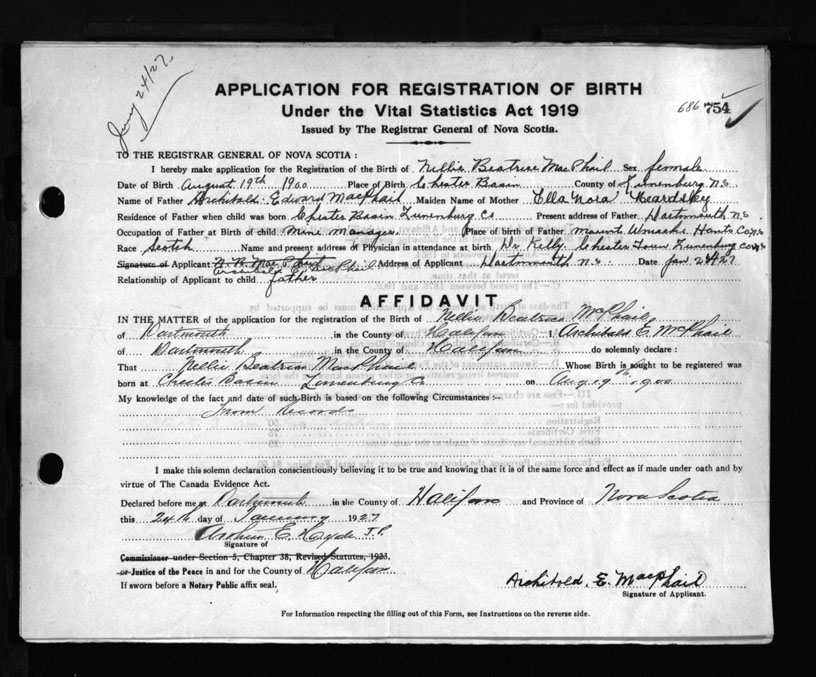 Jany 24/27.
APPLICATION FOR REGISTRATION OF BIRTH
Under the Vital Statistics Act 1919
Issued by The Registrar General of Nova Scotia.
686 754
TO THE REGISTRAR GENERAL OF NOVA SCOTIA :
I hereby make application for the Registration of the Birth of Nellie Beatrice MacPhail Sex female
Date of Birth August 19th 1900 Place of Birth Chester Basin County of Lunenburg N.S.
Name of Father Archibald Edward MacPhail Maiden Name of Mother Ella Nora Beardsley
Residence of Father when child was born Chester Basin Lunenburg Co Present address of Father Dartmouth N.S.
Occupation of Father at Birth of child Mine Manager Place of Birth of father Mount Uniacke Hants Co N.S.
Race Scotch Name and present address of Physician in attendance at birth Dr. Kelly Chester Town Lunenburg Co N.S.
Signature of Applicant Archibald E. MacPhail Address of Applicant Dartmouth N.S. Date Jan 24 27
Relationship of Applicant to child father
AFFIDAVIT
IN THE MATTER of the application for the registration of the Birth of Nellie Beatrice McPhail
of Dartmouth in the County of Halifax I, Archibald E. McPhail
of Dartmouth in the County of Halifax do solemnly declare :
That Nellie Beatrice MacPhail Whose Birth is sought to be registered was
born at Chester Basin Lunenburg Co on Aug 19th 1900
My knowledge of the fact and date of such Birth is based on the following Circumstances :-
From Records
I make this solemn declaration conscientiously believing it to be true and knowing that it is of the same force and effect as if made under oath and by
virtue of The Canada Evidence Act.
Declared before me at Dartmouth in the County of Halifax and Province of Nova Scotia
this 24th day of January 1927
Arthur E. Hyde J.P.
Signature of
Commissioner under Section 5, Chapter 38, Revised Statutes, 1923.
or Justice of the Peace in and for the County of Halifax
If sworn before a Notary Public affix seal.
Archibald. E. MacPhail
Signature of Applicant.
For Information respecting the filling out of this Form, see Instructions on the reverse side.